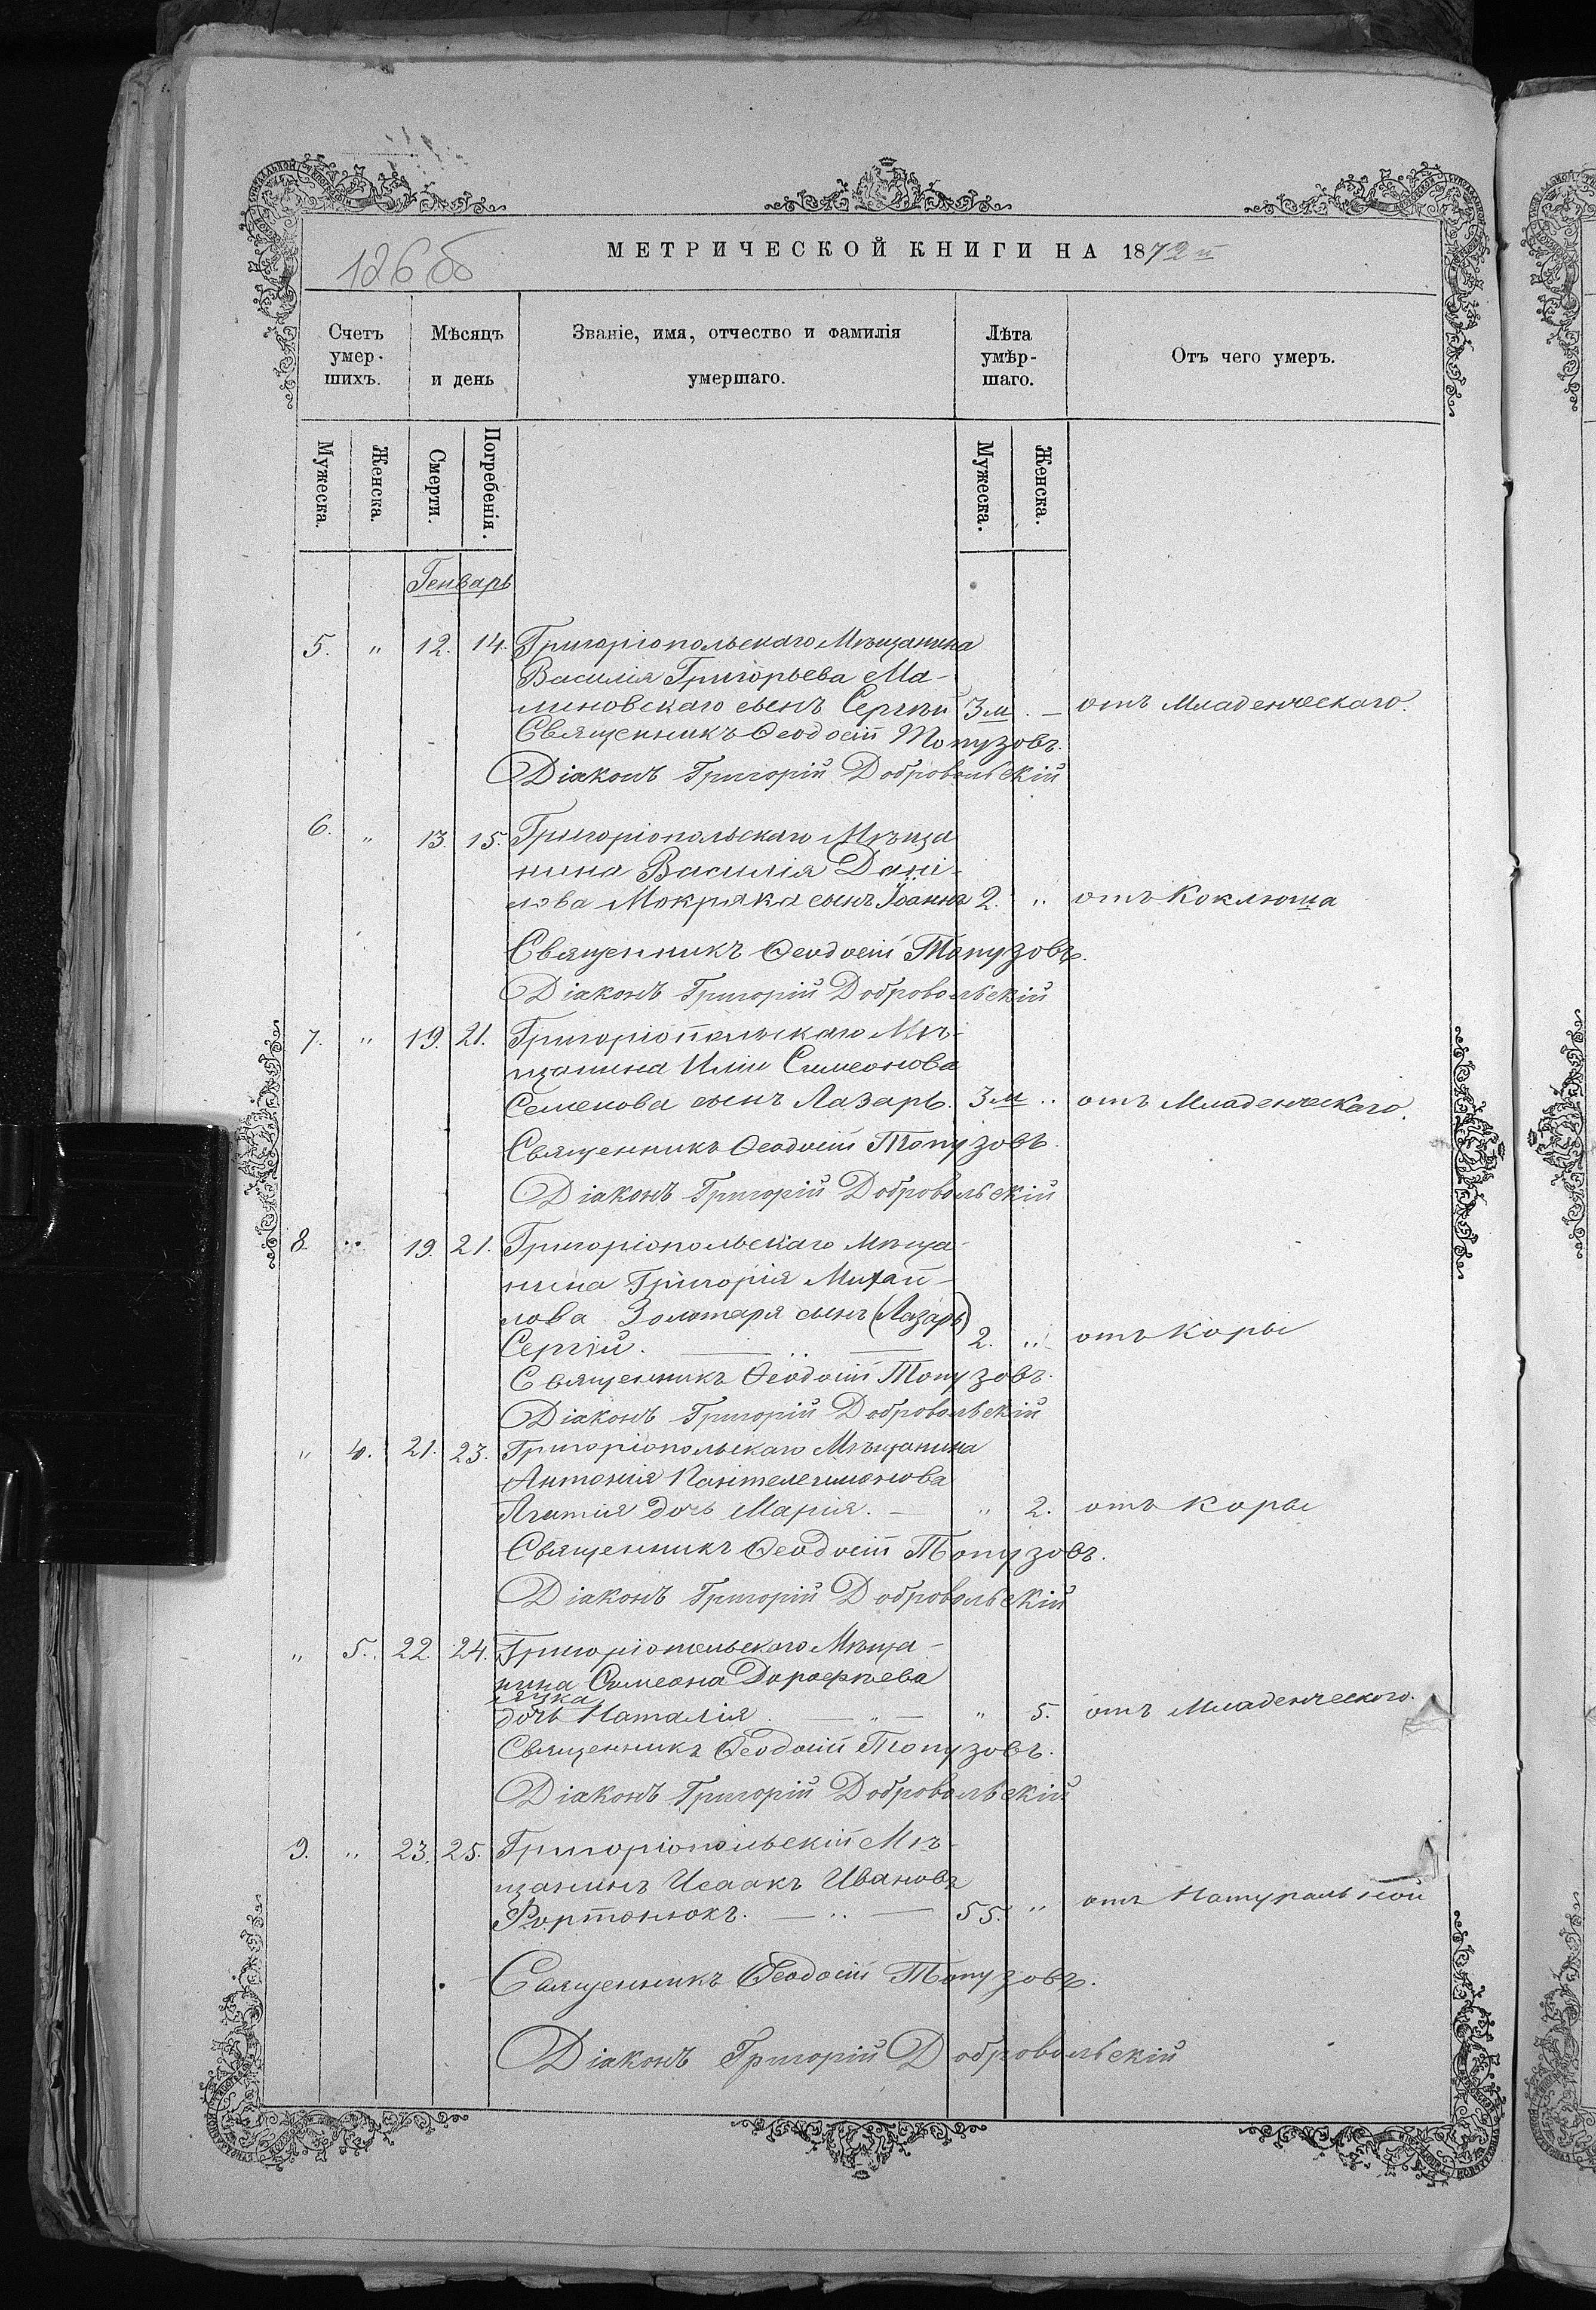 126 об
МЕТРИЧЕСКОЙ КНИГИ НА 1872й
Счетъ умер-шихъ.
Мѣсяцъ и день
Званіе, имя, отчество и фамилія умершаго.
Лѣта умѣр-шаго.
Отъ чего умеръ.
Мужеска.
Женска.
Смерти.
Погребенія.
Мужеска.
Женска.
Генварь
5. " 12. 14. Григоріопольскаго Мѣщанина
Василія Григорьева Ма-
линовскаго сынъ Сергѣй 3 м. — отъ Младенческаго.
Священникъ Ѳеодосій Топузовъ.
Діаконъ Григорій Добровольскій
6. " 13. 15. Григоріопольскаго Мѣща
нина Василія Дані-
лова Мокряка сынъ Іоаннъ 2. " отъ Коклюша
Священникъ Ѳеодосій Топузовъ.
Діаконъ Григорій Добровольскій
7. " 19. 21. Григоріопольскаго Мѣ-
щанина Иліи Симеонова
Семенова сынъ Лазарь. 3 м " отъ Младенческаго.
Священникъ Ѳеодосій Топузовъ.
Діаконъ Григорій Добровольскій
8. " 19. 21. Григоріопольскаго Мѣща-
нина Григорія Михай-
лова Золотаря сынъ (Лазарь)
Сергій. — " — 2. " отъ Коры
Священникъ Ѳеодосій Топузовъ.
Діаконъ Григорій Добровольскій
" 4. 21. 23. Григоріопольскаго Мѣщанина
Антонія Пантелеимонова
дочь Марія. — " 2. отъ Коры
Священникъ Ѳеодосій Топузовъ.
Діаконъ Григорій Добровольскій
" 5. 22. 24. Григоріопольскаго Мѣща-
нина Симеона Дорофѣева
дочь Наталія. — " — " 5. отъ Младенческаго.
Священникъ Ѳеодосій Топузовъ.
Діаконъ Григорій Добровольскій
9. " 23. 25. Григоріопольскій Мѣ-
щанинъ Исаакъ Ивановъ
Фортонюкъ. — " — 55. " отъ Натуральной
Священникъ Ѳеодосій Топузовъ.
Діаконъ Григорій Добровольскій